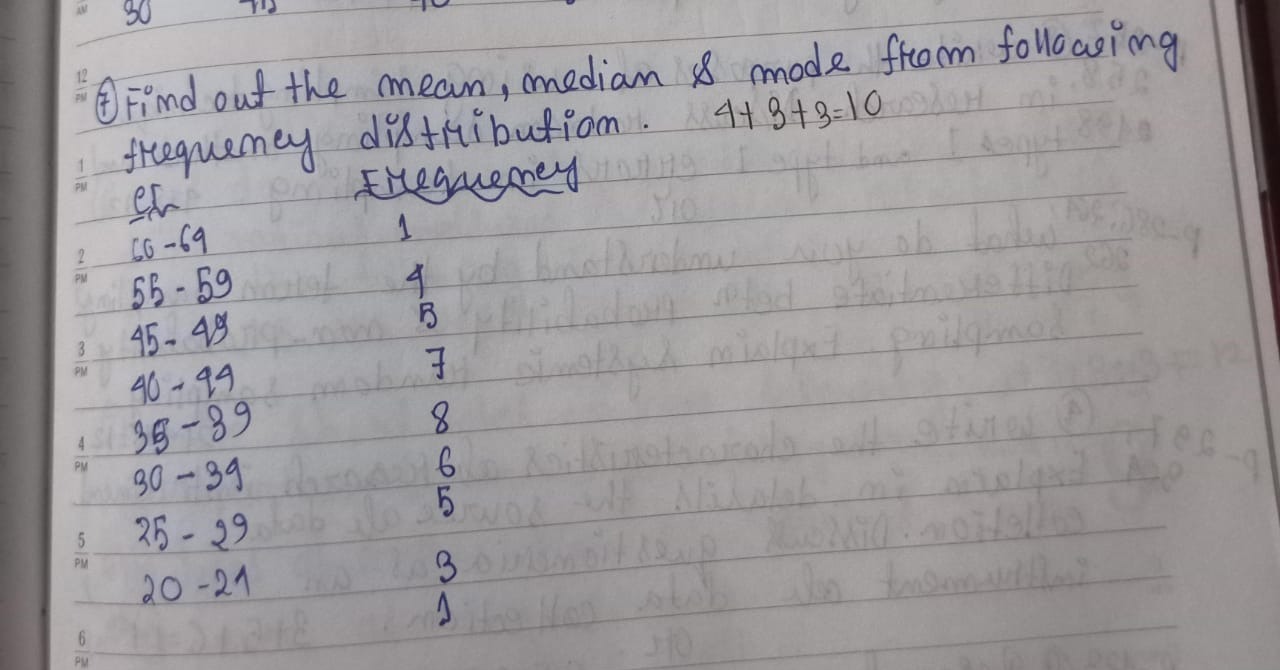 30
12 PM
⑦ Find out the mean, median & mode from following
frequency distribution. 4+3+3=10
1 PM
CI Frequency
2 PM
60-64 1
55-59 4
45-49 5
3 PM
40-44 7
35-39 8
4 PM
30-34 6
25-29 5
5 PM
20-24 3
1
6 PM